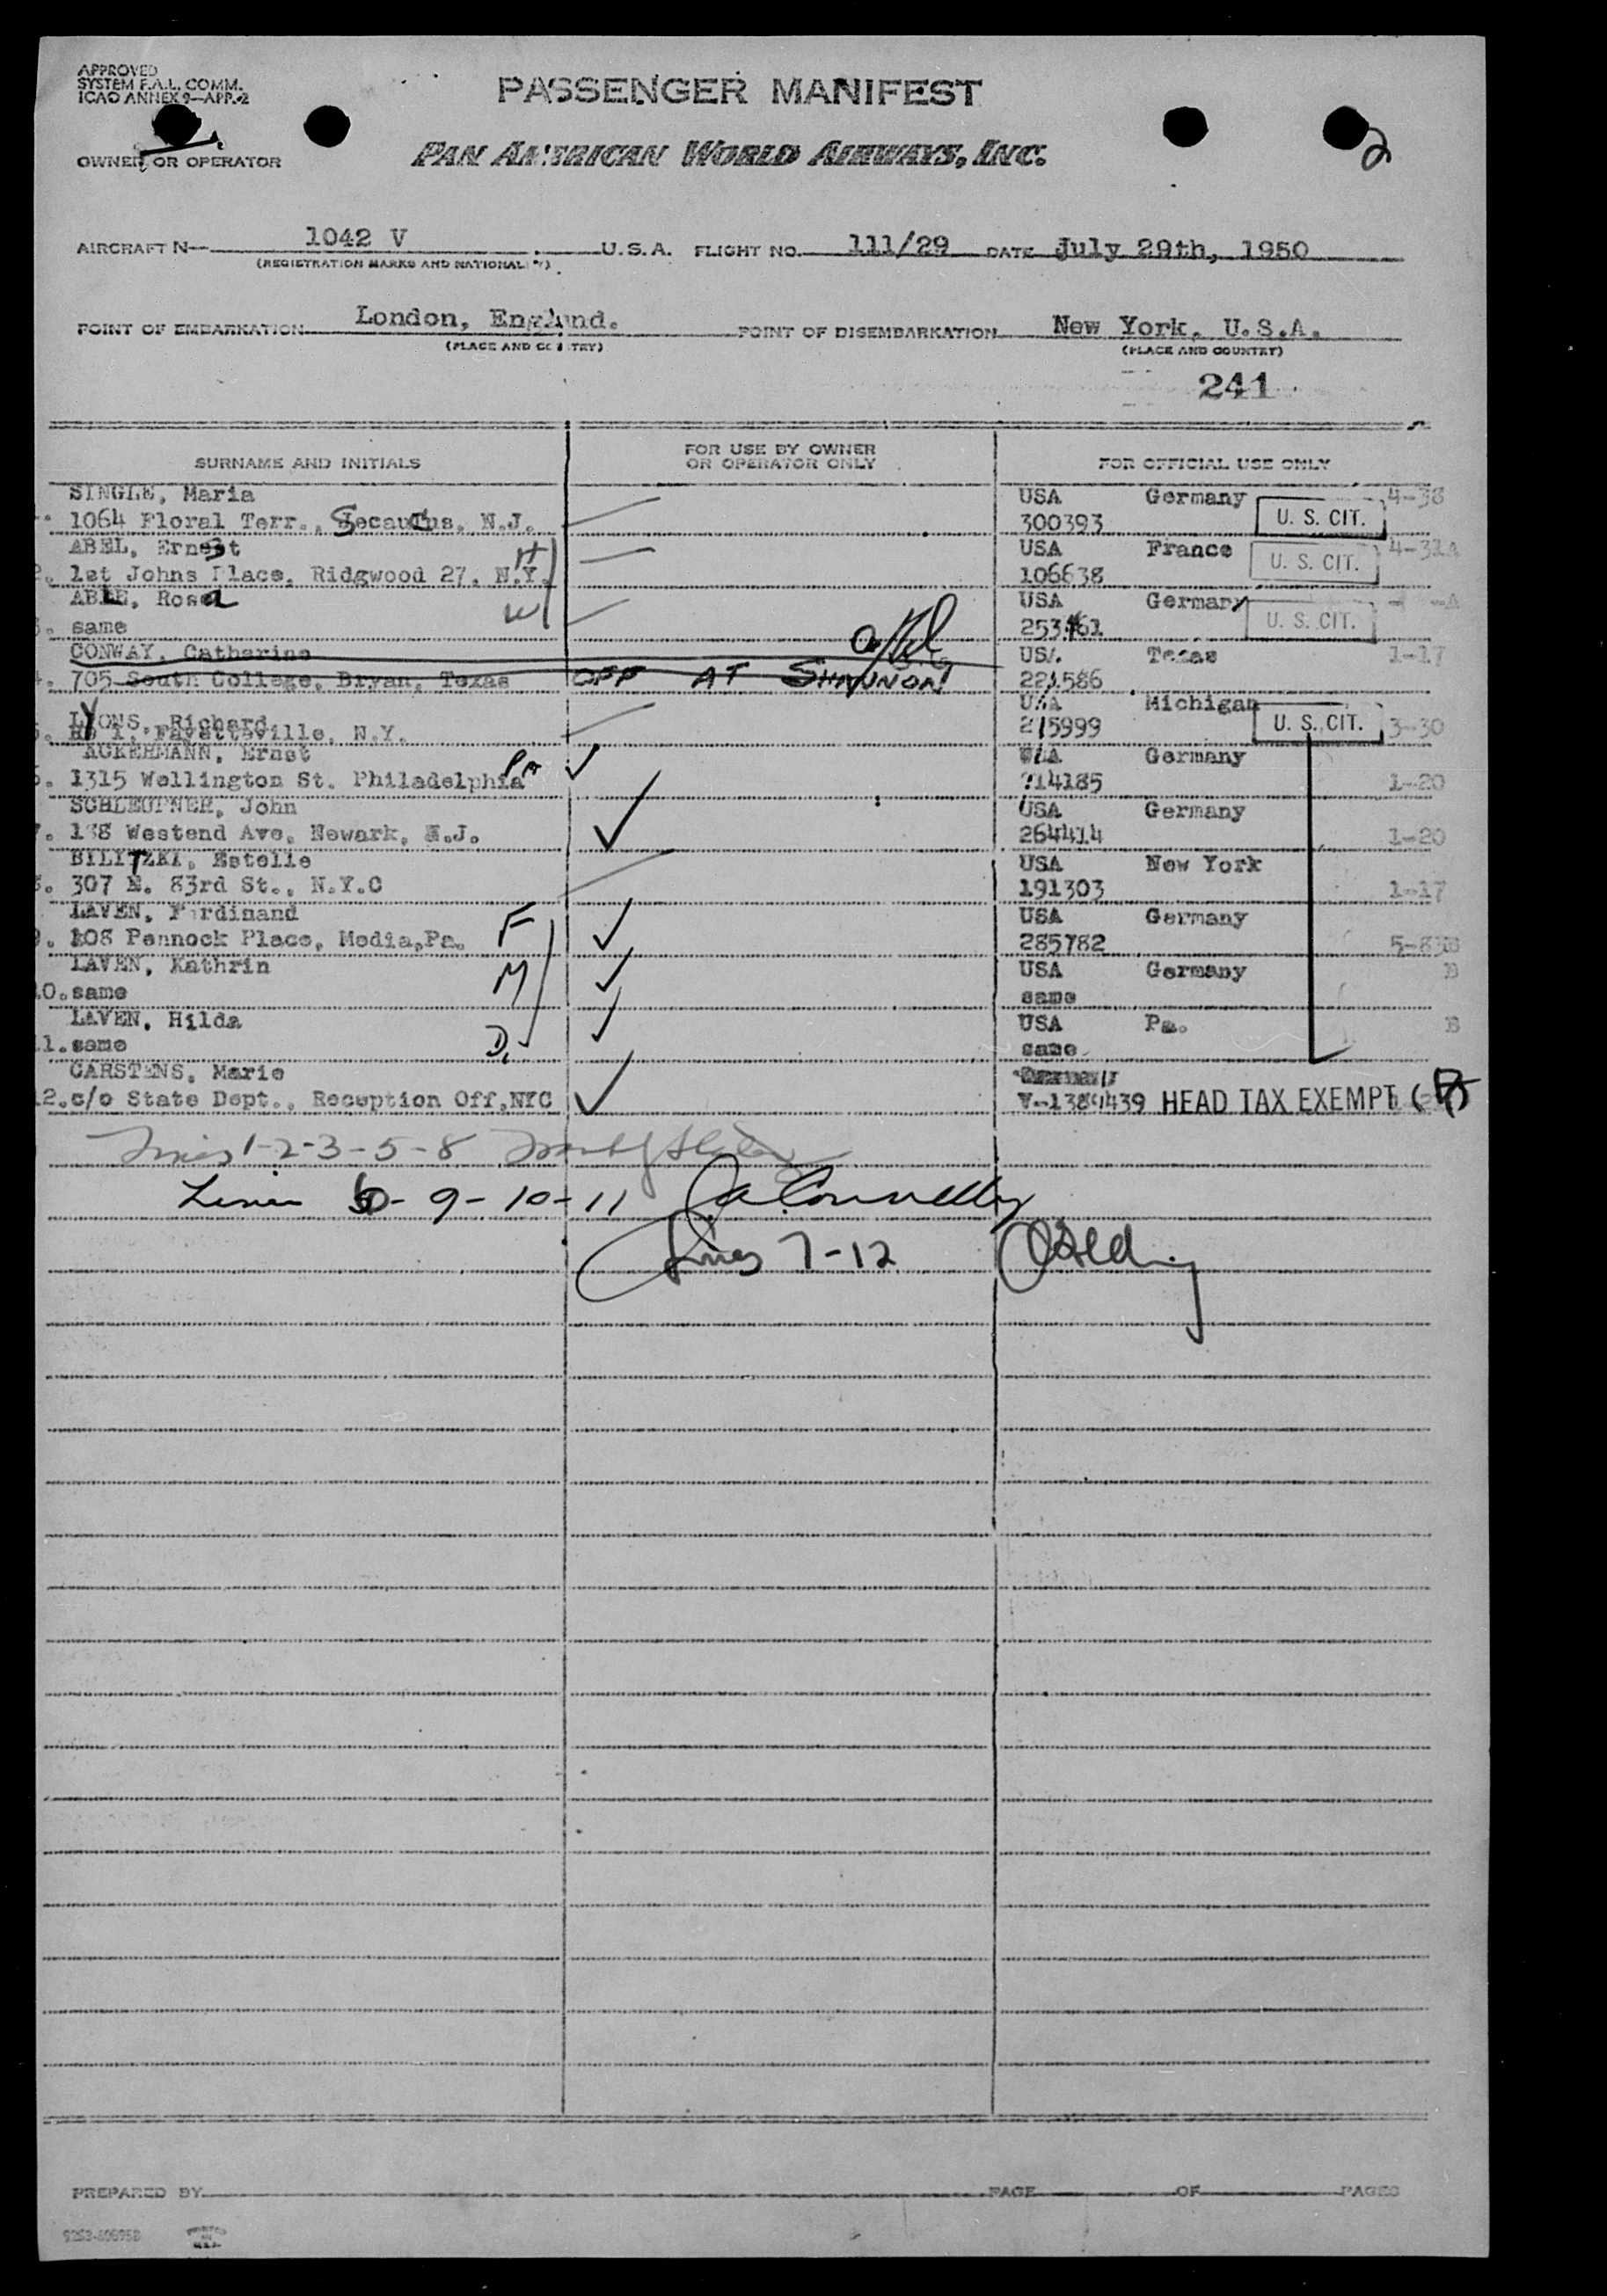 APPROVED
SYSTEM F.A.L. COMM.
ICAO ANNEX 9—APP. 2
PASSENGER MANIFEST
2
OWNER OR OPERATOR
PAN AMERICAN WORLD AIRWAYS, INC.
AIRCRAFT N— 1042 V U.S.A. FLIGHT NO. 111/29 DATE July 29th, 1950
(REGISTRATION MARKS AND NATIONALITY)
POINT OF EMBARKATION London, England. POINT OF DISEMBARKATION New York, U.S.A.
(PLACE AND COUNTRY) (PLACE AND COUNTRY)
241
SURNAME AND INITIALS FOR USE BY OWNER OR OPERATOR ONLY FOR OFFICIAL USE ONLY
SINGLE, Maria USA Germany 4-38
1064 Floral Terr., Secaucus, N.J. 300393 U. S. CIT.
ABEL, Ernest H USA France 4-31A
2. 1st Johns Place, Ridgwood 27, N.Y. 106638 U. S. CIT.
ABLE, Rosa W USA Germany
3. same 253461 U. S. CIT.
CONWAY, Catherine USA Texas 1-17
4. 705 South College, Bryan, Texas OFF AT SHANNON 221586
LYONS, Richard USA Michigan
5. RD 1, Fayetteville, N.Y. 215999 U. S. CIT. 3-30
ACKERMANN, Ernst USA Germany
6. 1315 Wellington St. Philadelphia Pa 714185 1-20
SCHLEUPNER, John USA Germany
7. 138 Westend Ave, Newark, N.J. 264414 1-20
BILITZKI, Estelle USA New York
8. 307 E. 83rd St., N.Y.C 191303 1-17
LAVEN, Ferdinand F USA Germany
9. 208 Pennock Place, Media,Pa. 285782 5-83B
LAVEN, Kathrin M USA Germany B
10. same same
LAVEN, Hilda D. USA Pa. B
11. same same
CARSTENS, Marie Germany
12. c/o State Dept., Reception Off,NYC V-1384439 HEAD TAX EXEMPT
Lines 1-2-3-5-8
Lines 6-9-10-11 JA Connelly
Lines 7-12
PREPARED BY PAGE OF PAGES